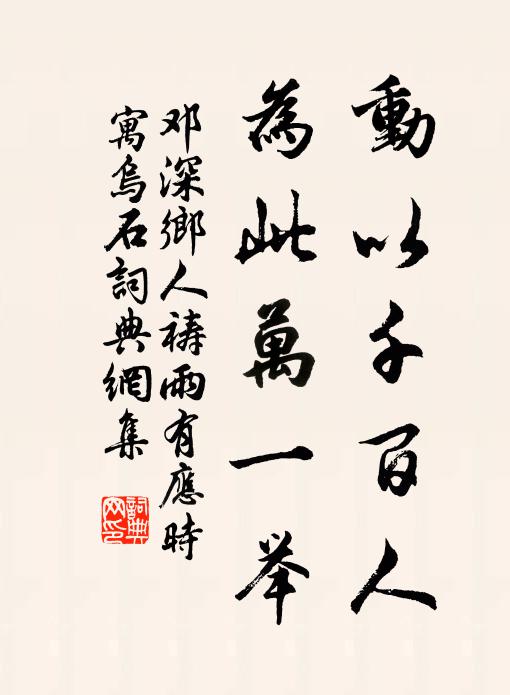 動以千百人
為此萬一举
邓深鄉人禱雨有應時
寓烏石詞典網集
詞典网印